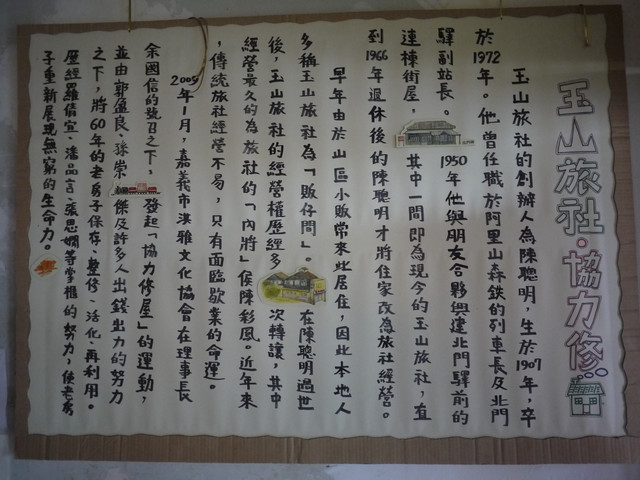 玉山旅社·協力修...
玉山旅社的創辦人為陳聰明，生於1907年，卒
於1972年。他曾任職於阿里山森鉄的列車長及北門
驛副站長。1950年他與朋友合夥興建北門驛前的
連棟街屋，其中一間即為現今的玉山旅社，直
到1966年退休後的陳聰明才將住家改為旅社經營。
早年由於山區小販常來此居住，因此本地人
多稱玉山旅社為「販仔間」。在陳聰明過世
後，玉山旅社的經營權歷經多次轉讓，其中
經營最久的為旅社的「內將」侯陳彩鳳。近年來
，傳統旅社經營不易，只有面臨歇業的命運。
2005年1月，嘉義市洪雅文化協會在理事長
余國信的號召之下，發起「協力修屋」的運動，
並由郭盈良、孫崇傑及許多人出錢出力的努力
之下，將60年的老房子保存、整修、活化、再利用。
歷經羅倩宜、潘品言、張思嫺等掌櫃的努力，使老房
子重新展現無窮的生命力。